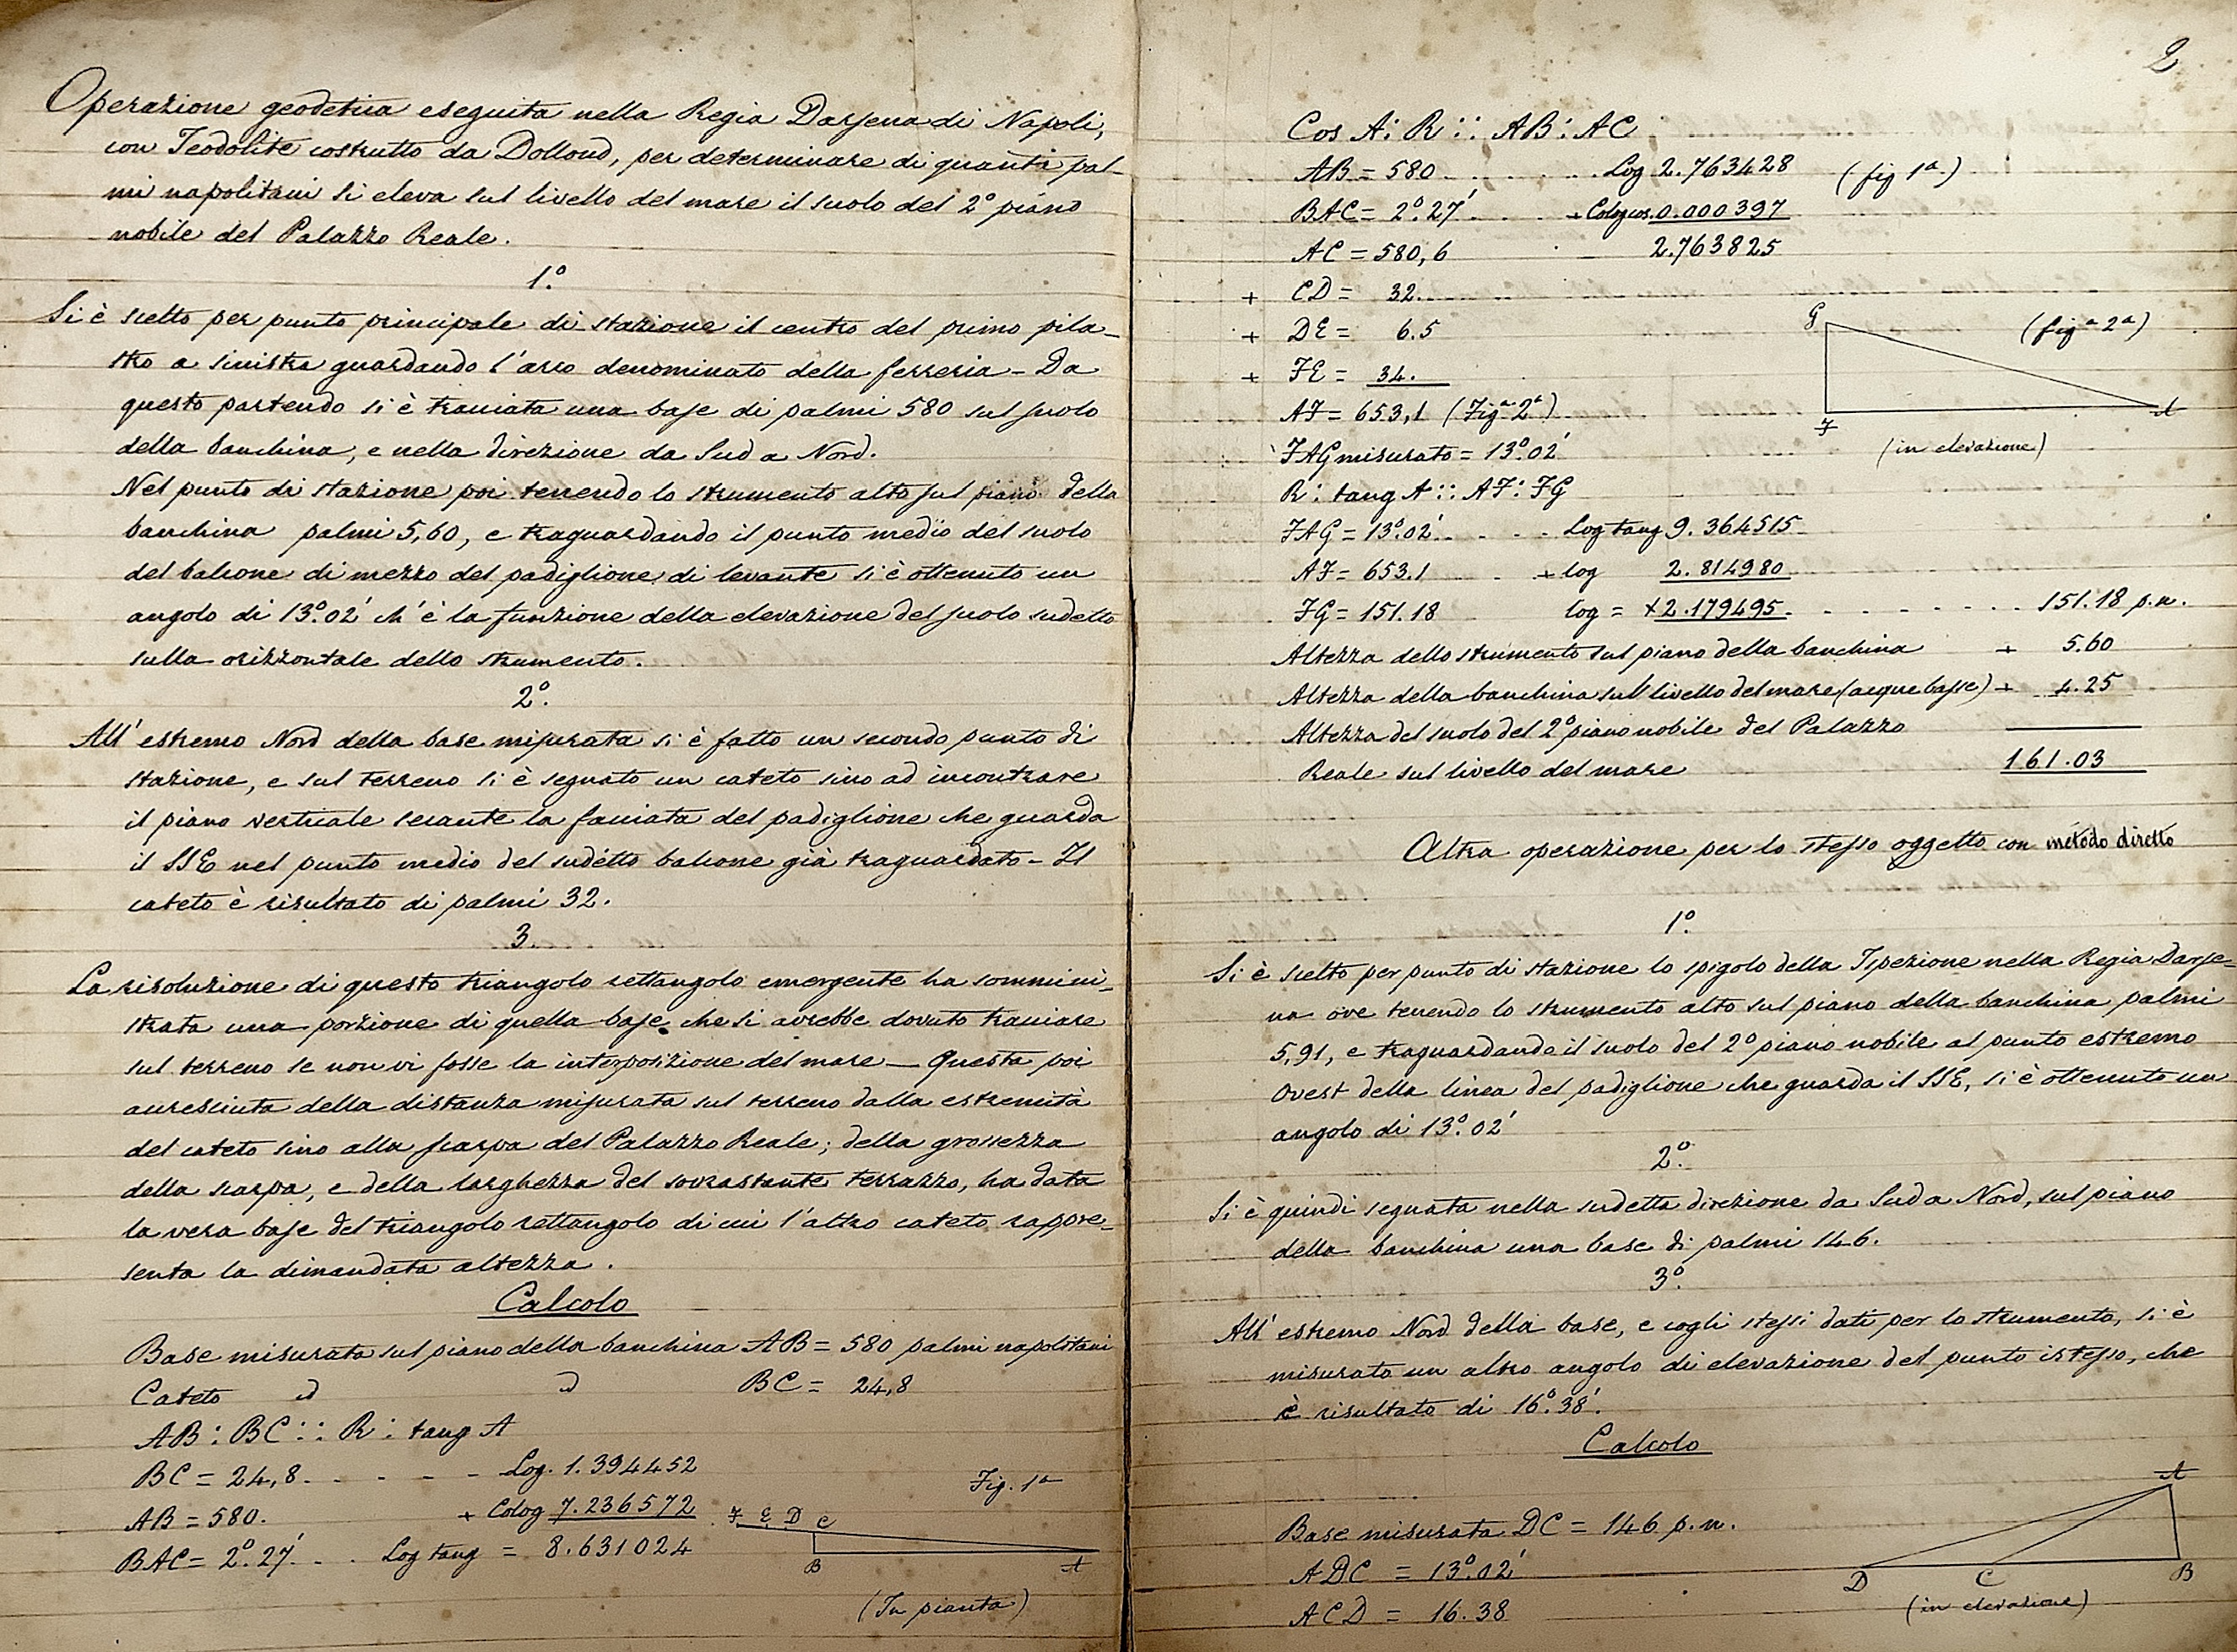 Operazione geodetica eseguita nella Regia Darsena di Napoli,
con Teodolite costrutto da Dollond, per determinare di quanti pal-
mi napolitani si eleva sul livello del mare il suolo del 2° piano
nobile del Palazzo Reale.
1°.
Si è scelto per punto principale di stazione il centro del primo pila-
stro a sinistra guardando l'arco denominato della ferreria - Da
questo partendo si è tracciata una base di palmi 580 sul suolo
della banchina, e nella direzione da Sud a Nord.
Nel punto di stazione poi tenendo lo strumento alto sul piano della
banchina palmi 5,60, e traguardando il punto medio del suolo
del balcone di mezzo del padiglione di levante si è ottenuto un
angolo di 13°.02' ch'è la funzione della elevazione del suolo sudetto
sulla orizzontale dello strumento.
2°.
All'estremo Nord della base misurata si è fatto un secondo punto di
stazione, e sul terreno si è segnato un cateto sino ad incontrare
il piano verticale secante la facciata del padiglione che guarda
il SSE nel punto medio del sudetto balcone già traguardato - Il
cateto è risultato di palmi 32.
3.
La risoluzione di questo triangolo rettangolo emergente ha sommini-
strata una porzione di quella base che si avrebbe dovuto tracciare
sul terreno se non vi fosse la interposizione del mare — Questa poi
accresciuta della distanza misurata sul terreno dalla estremità
del cateto sino alla scarpa del Palazzo Reale; della grossezza
della scarpa, e della larghezza del sovrastante terrazzo, ha data
la vera base del triangolo rettangolo di cui l'altro cateto rappre-
senta la dimandata altezza.
Calcolo
Base misurata sul piano della banchina AB = 580 palmi napolitani
Cateto d d BC = 24,8
AB : BC :: R : tang A
BC = 24,8. - - - - Log. 1.394452
AB = 580. + Colog 7.236572
BAC = 2°.27'. . . Log tang = 8.631024
Fig. 1ª
F E D C
B A
(In pianta)
2
Cos A : R :: AB : AC
AB = 580 . . . . . . Log 2.763428 (fig 1ª.)
BAC = 2°.27' . . . + Colog cos. 0.000397
AC = 580,6 2.763825
+ CD = 32.
+ DE = 6.5
+ FE = 34.
AF = 653,1 (Figª 2ª)
G (figª 2ª)
F A
(in elevazione)
FAG misurato = 13°.02'
R : tang A :: AF : FG
FAG = 13°.02' . . . . Log tang 9.364515
AF = 653.1 . + log 2.814980
FG = 151.18 log = +2.179495 . . . . . . . . 151.18 p.n.
Altezza dello strumento sul piano della banchina + 5.60
Altezza della banchina sul livello del mare (acque basse) + 4.25
Altezza del suolo del 2° piano nobile del Palazzo
Reale sul livello del mare 161.03
Altra operazione per lo stesso oggetto con metodo diretto
1°.
Si è scelto per punto di stazione lo spigolo della Ispezione nella Regia Darse-
na ove tenendo lo strumento alto sul piano della banchina palmi
5,91, e traguardando il suolo del 2° piano nobile al punto estremo
Ovest della linea del padiglione che guarda il SSE, si è ottenuto un
angolo di 13°.02'
2°.
Si è quindi segnata nella sudetta direzione da Sud a Nord, sul piano
della banchina una base di palmi 146.
3°.
All'estremo Nord della base, e cogli stessi dati per lo strumento, si è
misurato un altro angolo di elevazione del punto istesso, che
è risultato di 16°.38'.
Calcolo
Base misurata DC = 146 p.n.
ADC = 13°.02'
ACD = 16.38
A
D C B
(in elevazione)